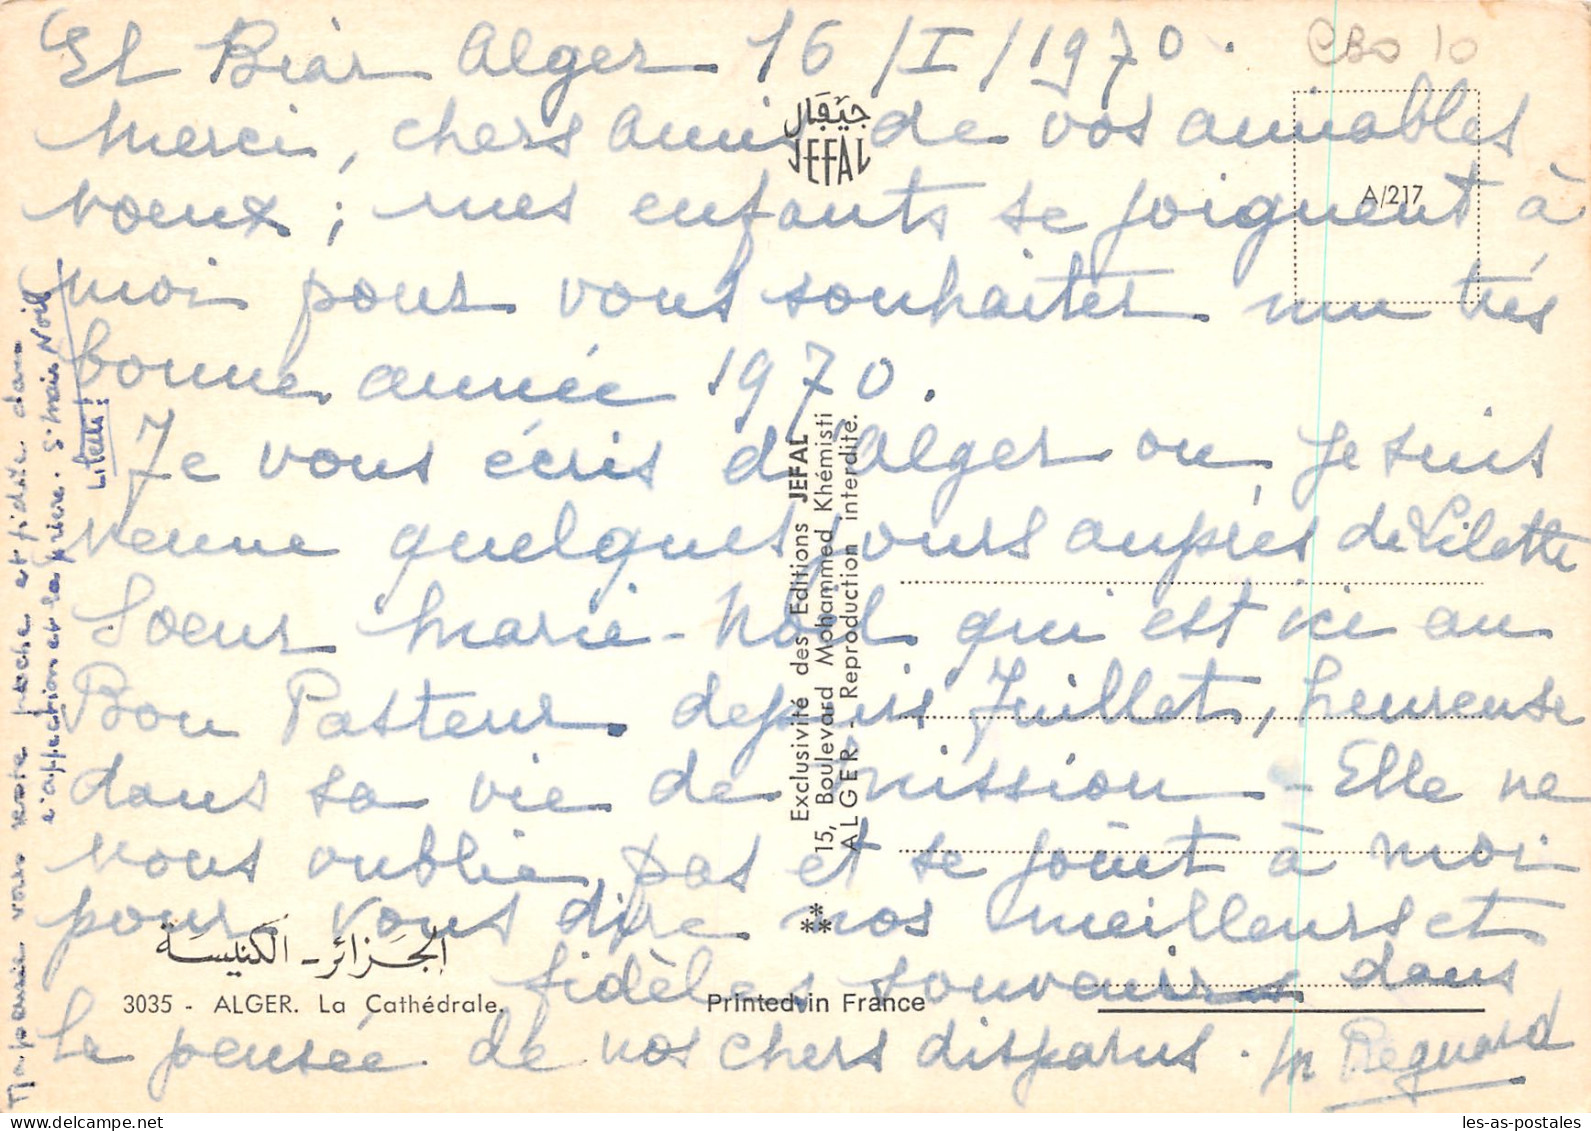 El Biar Alger 16/I/1970.
CBO 10
Merci, chers amis de vos aimables
voeux ; mes enfants se joignent à
moi pour vous souhaiter une très
bonne année 1970.
Je vous écris d'Alger ou je suis
venue quelques jours auprès de Lilette
Soeur Marie-Noël qui est ici au
Bon Pasteur depuis Juillet, heureuse
dans sa vie de mission - Elle ne
vous oublie pas et se joint à moi
pour vous dire nos meilleurs et
fidèles souvenirs dans
le pensée de nos chers disparus.
Regnard
Ma pensée vous reste proche et fidèle dans
l'affection et la prière. Sr Marie Noël
Lilette
جيفال
JEFAL
A/217
Exclusivité des Editions JEFAL
15, Boulevard Mohammed Khémisti
ALGER - Reproduction interdite.
الجزائر - الكنيسة
3035 - ALGER. La Cathédrale.
Printed in France
les-as-postales